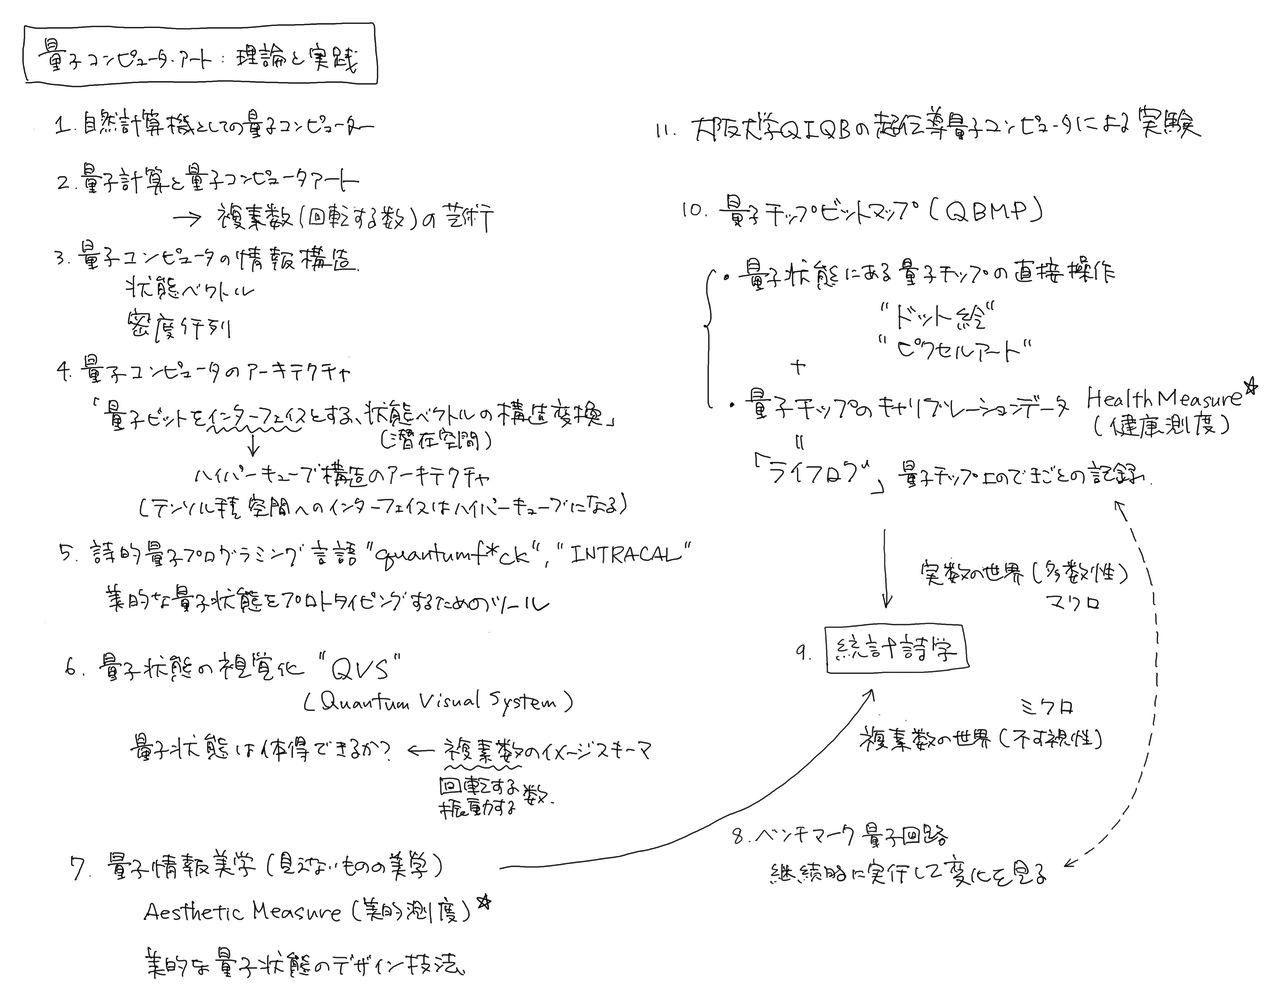 量子コンピュータ・アート：理論と実践
1. 自然計算機としての量子コンピューター
2. 量子計算と量子コンピュータアート
→ 複素数(回転する数)の芸術
3. 量子コンピュータの情報構造
状態ベクトル
密度行列
4. 量子コンピュータのアーキテクチャ
「量子ビットをインターフェイスとする、状態ベクトルの構造変換」
(潜在空間)
ハイパーキューブ構造のアーキテクチャ
(テンソル積空間へのインターフェイスはハイパーキューブになる)
5. 詩的量子プログラミング言語 "quantumf*ck", "INTRACAL"
美的な量子状態をプロトタイピングするためのツール
6. 量子状態の視覚化 "QVS"
(Quantum Visual System)
量子状態は体得できるか? ← 複素数のイメージスキーマ
回転する
振動する 数.
7. 量子情報美学 (見えないものの美学)
Aesthetic Measure (美的測度)☆
美的な量子状態のデザイン技法
11. 大阪大学QIQBの超伝導量子コンピュータによる実験
10. 量子チップビットマップ (QBMP)
・量子状態にある量子チップの直接操作
"ドット絵"
"ピクセルアート"
+
・量子チップのキャリブレーションデータ Health Measure☆
(健康測度)
=
「ライフログ」 量子チップ上のできごとの記録.
実数の世界 (多数性)
マクロ
9. 統計詩学
ミクロ
複素数の世界 (不可視性)
8. ベンチマーク量子回路
継続的に実行して変化を見る